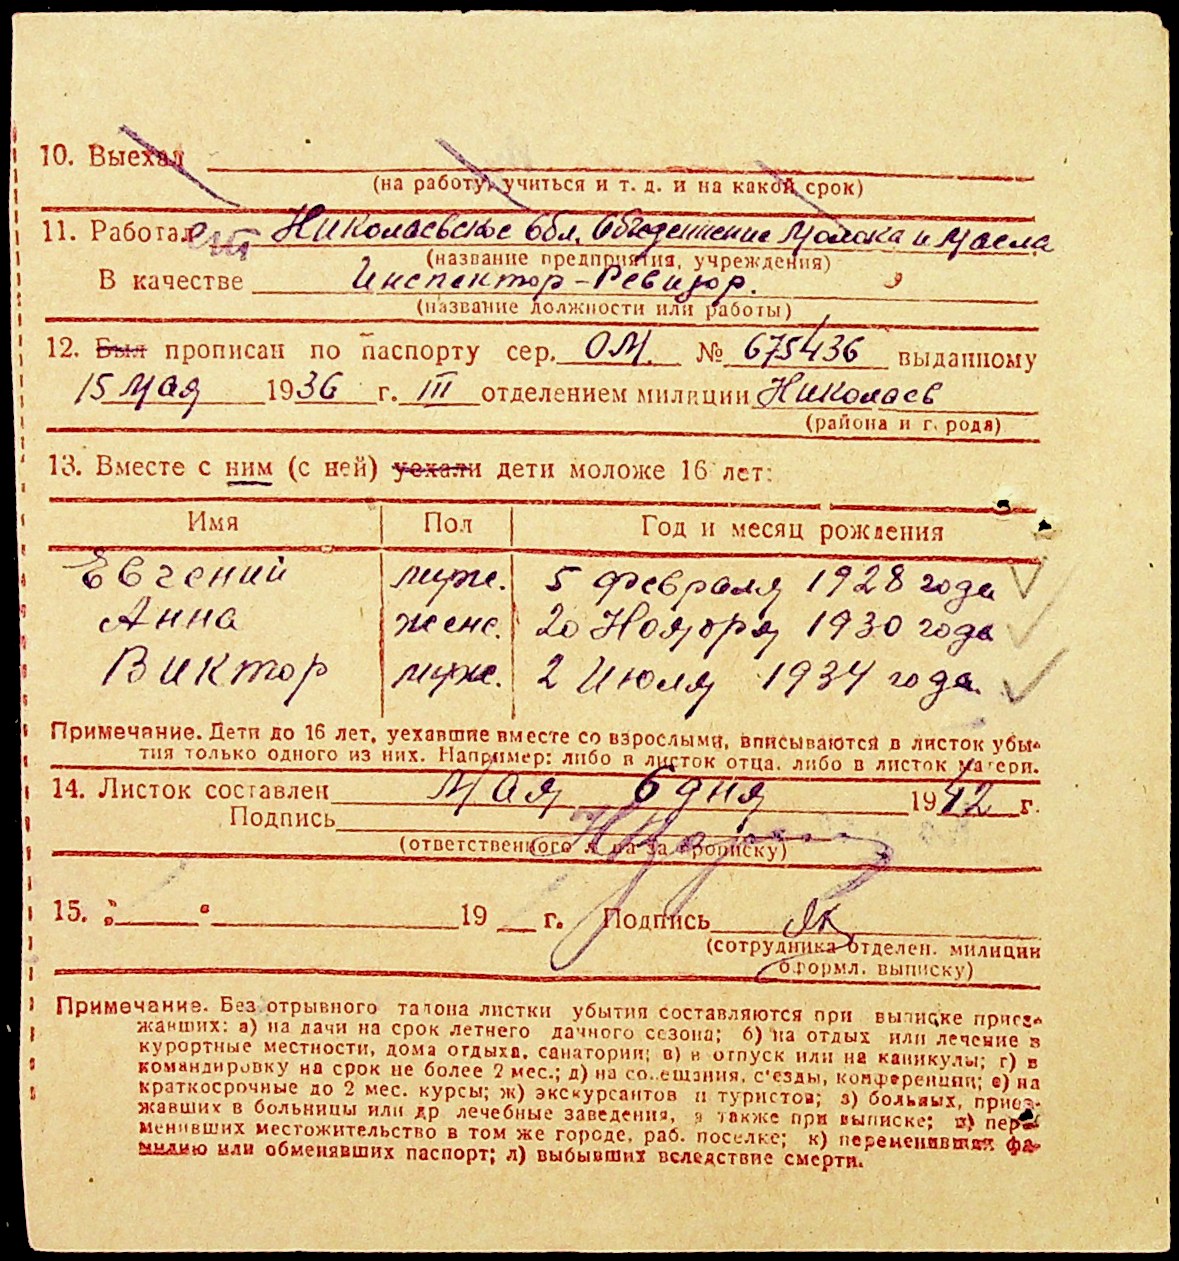 10. Выехал
(на работу, учиться и т. д. и на какой срок)
11. Работает Николаевское Обл. Объеденение Молока и Масла
(название предприятия, учреждения)
В качестве Инспектор-Ревизор.
(название должности или работы)
12. Был прописан по паспорту сер. ОМ. № 675436 выданному
15 Мая 1936 г. III отделением милиции Николаев
(района и города)
13. Вместе с ним (с ней) уехали дети моложе 16 лет:
Имя Пол Год и месяц рождения
Евгений муж. 5 февраля 1928 года
Анна женс. 20 Ноября 1930 года
Виктор муж. 2 Июля 1934 года.
Примечание. Дети до 16 лет, уехавшие вместе со взрослыми, вписываются в листок убы-
тия только одного из них. Например: либо в листок отца, либо в листок матери.
14. Листок составлен Мая 6 дня 1942 г.
Подпись
(ответственного лица за прописку)
15. " " 19 г. Подпись
(сотрудника отделен. милиции
оформл. выписку)
Примечание. Без отрывного талона листки убытия составляются при выписке приез-
жавших: а) на дачи на срок летнего дачного сезона; б) на отдых или лечение в
курортные местности, дома отдыха, санатории; в) в отпуск или на каникулы; г) в
командировку на срок не более 2 мес.; д) на совещания, с'езды, конференции; е) на
краткосрочные до 2 мес. курсы; ж) экскурсантов и туристов; з) больных, приез-
жавших в больницы или др лечебные заведения, а также при выписке; и) пере-
менивших местожительство в том же городе, раб. поселке; к) переменивших фа-
милию или обменявших паспорт; л) выбывших вследствие смерти.